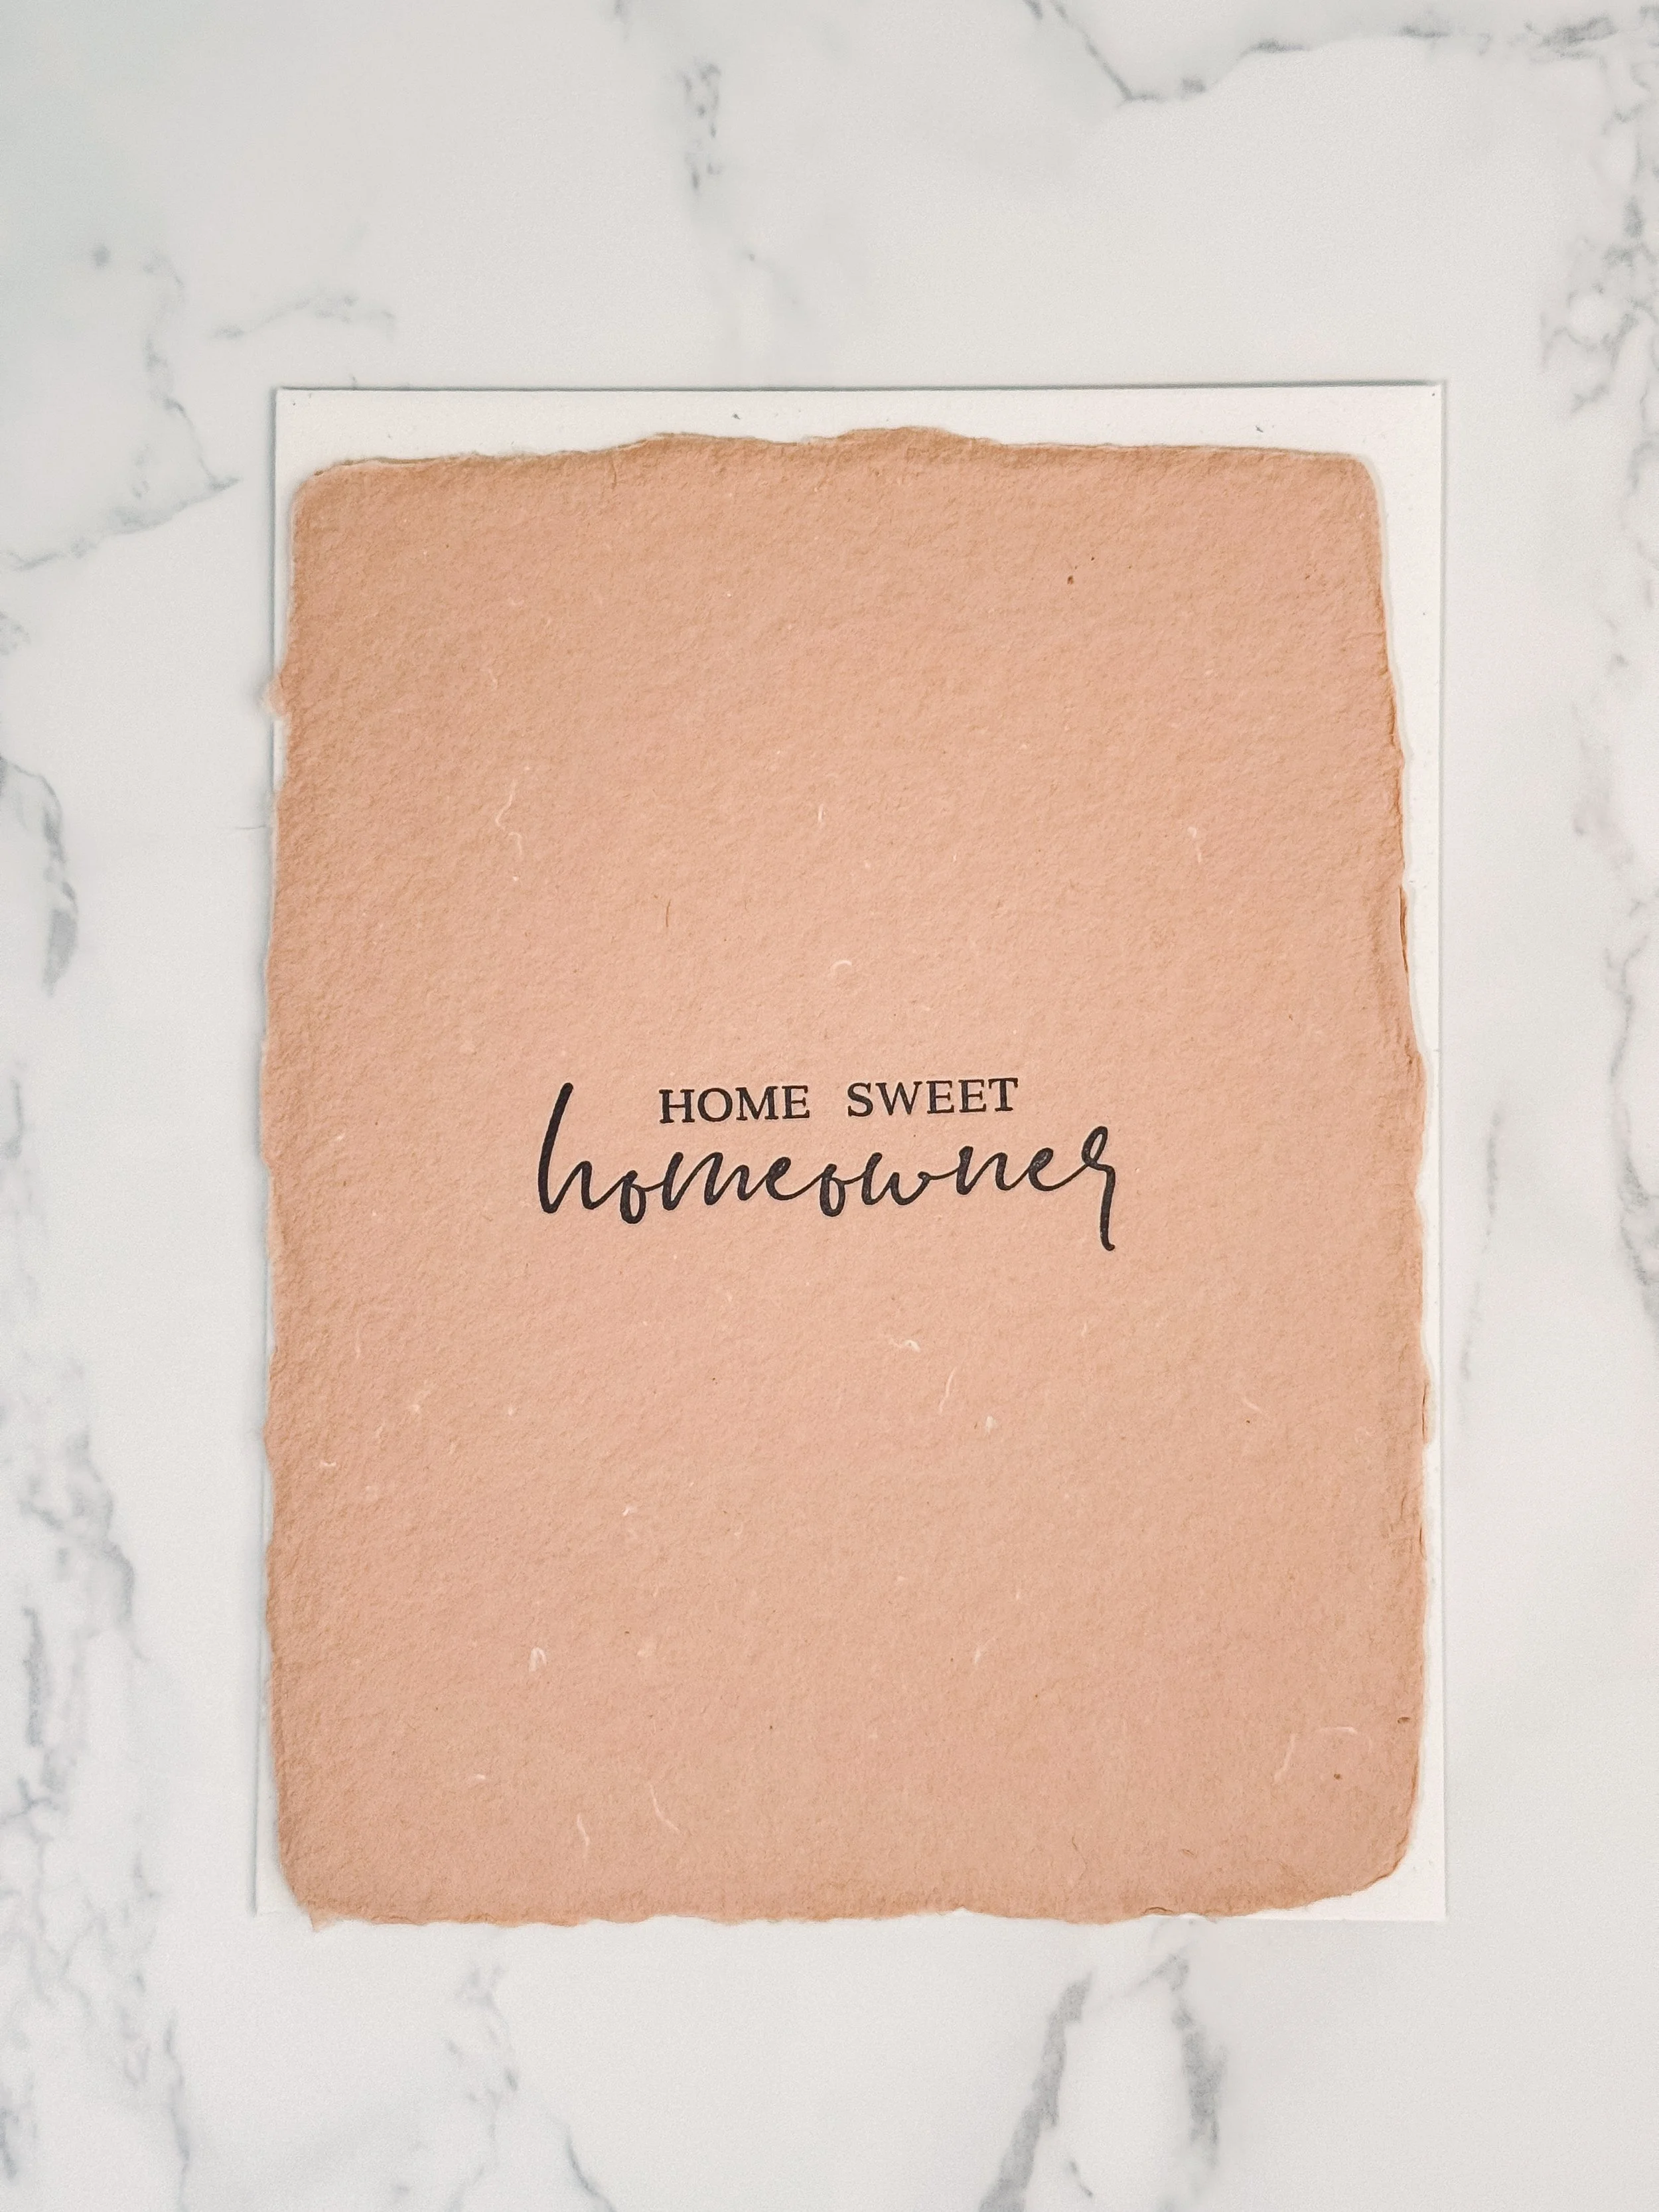 HOME SWEET
homeowner